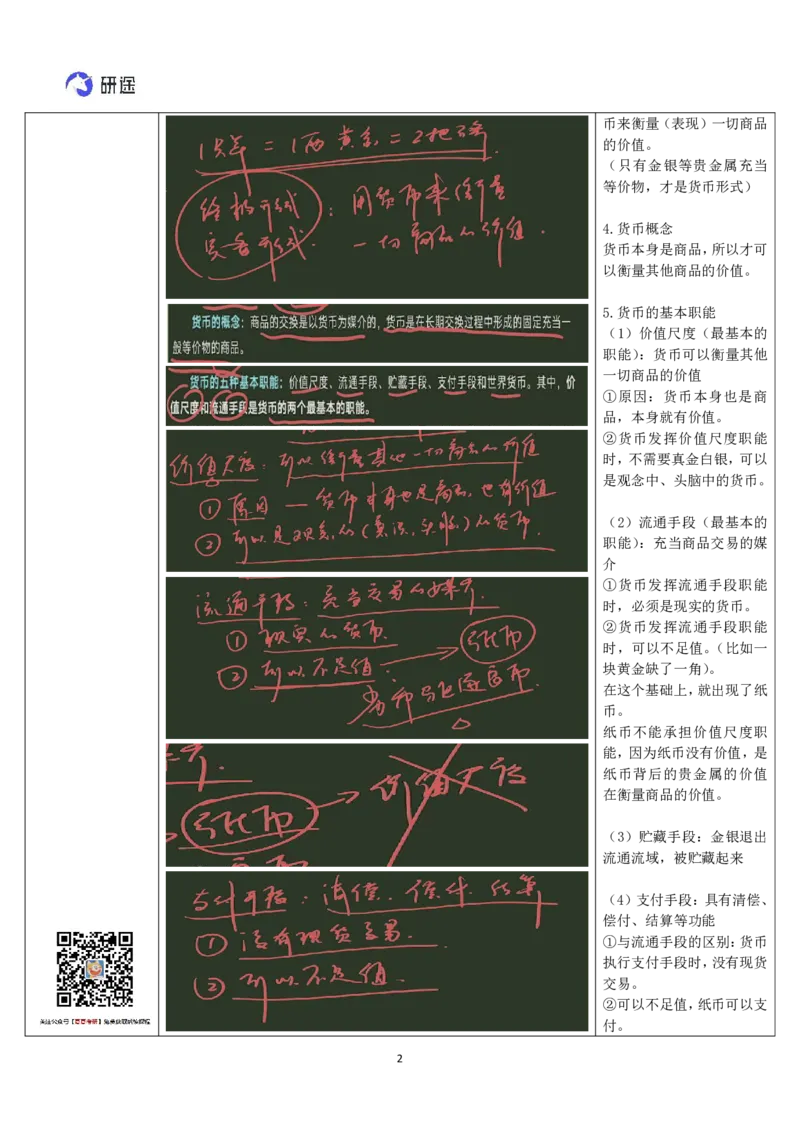 研途
1只羊 = 1两黄金 = 2把石斧
货币形式：用货币来衡量
一切商品的价值.
货币的概念：商品的交换是以货币为媒介的，货币是在长期交换过程中形成的固定充当一
般等价物的商品。
货币的五种基本职能：价值尺度、流通手段、贮藏手段、支付手段和世界货币。其中，价
值尺度和流通手段是货币的两个最基本的职能。
价值尺度：可以衡量其他一切商品的价值
① 原因 — 货币本身也是商品，也有价值
② 可以是观念的(意识，头脑)的货币.
流通手段：充当交易的媒介.
① 现实的货币.
② 可以不足值.
纸币
劣币驱逐良币.
纸币
价值尺度
支付手段：清偿. 偿付. 结算
① 没有现货交易.
② 可以不足值.
币来衡量（表现）一切商品
的价值。
（只有金银等贵金属充当
等价物，才是货币形式）
4.货币概念
货币本身是商品，所以才可
以衡量其他商品的价值。
5.货币的基本职能
（1）价值尺度（最基本的
职能）：货币可以衡量其他
一切商品的价值
①原因：货币本身也是商
品，本身就有价值。
②货币发挥价值尺度职能
时，不需要真金白银，可以
是观念中、头脑中的货币。
（2）流通手段（最基本的
职能）：充当商品交易的媒
介
①货币发挥流通手段职能
时，必须是现实的货币。
②货币发挥流通手段职能
时，可以不足值。（比如一
块黄金缺了一角）。
在这个基础上，就出现了纸
币。
纸币不能承担价值尺度职
能，因为纸币没有价值，是
纸币背后的贵金属的价值
在衡量商品的价值。
（3）贮藏手段：金银退出
流通流域，被贮藏起来
（4）支付手段：具有清偿、
偿付、结算等功能
①与流通手段的区别：货币
执行支付手段时，没有现货
交易。
②可以不足值，纸币可以支
付。
2